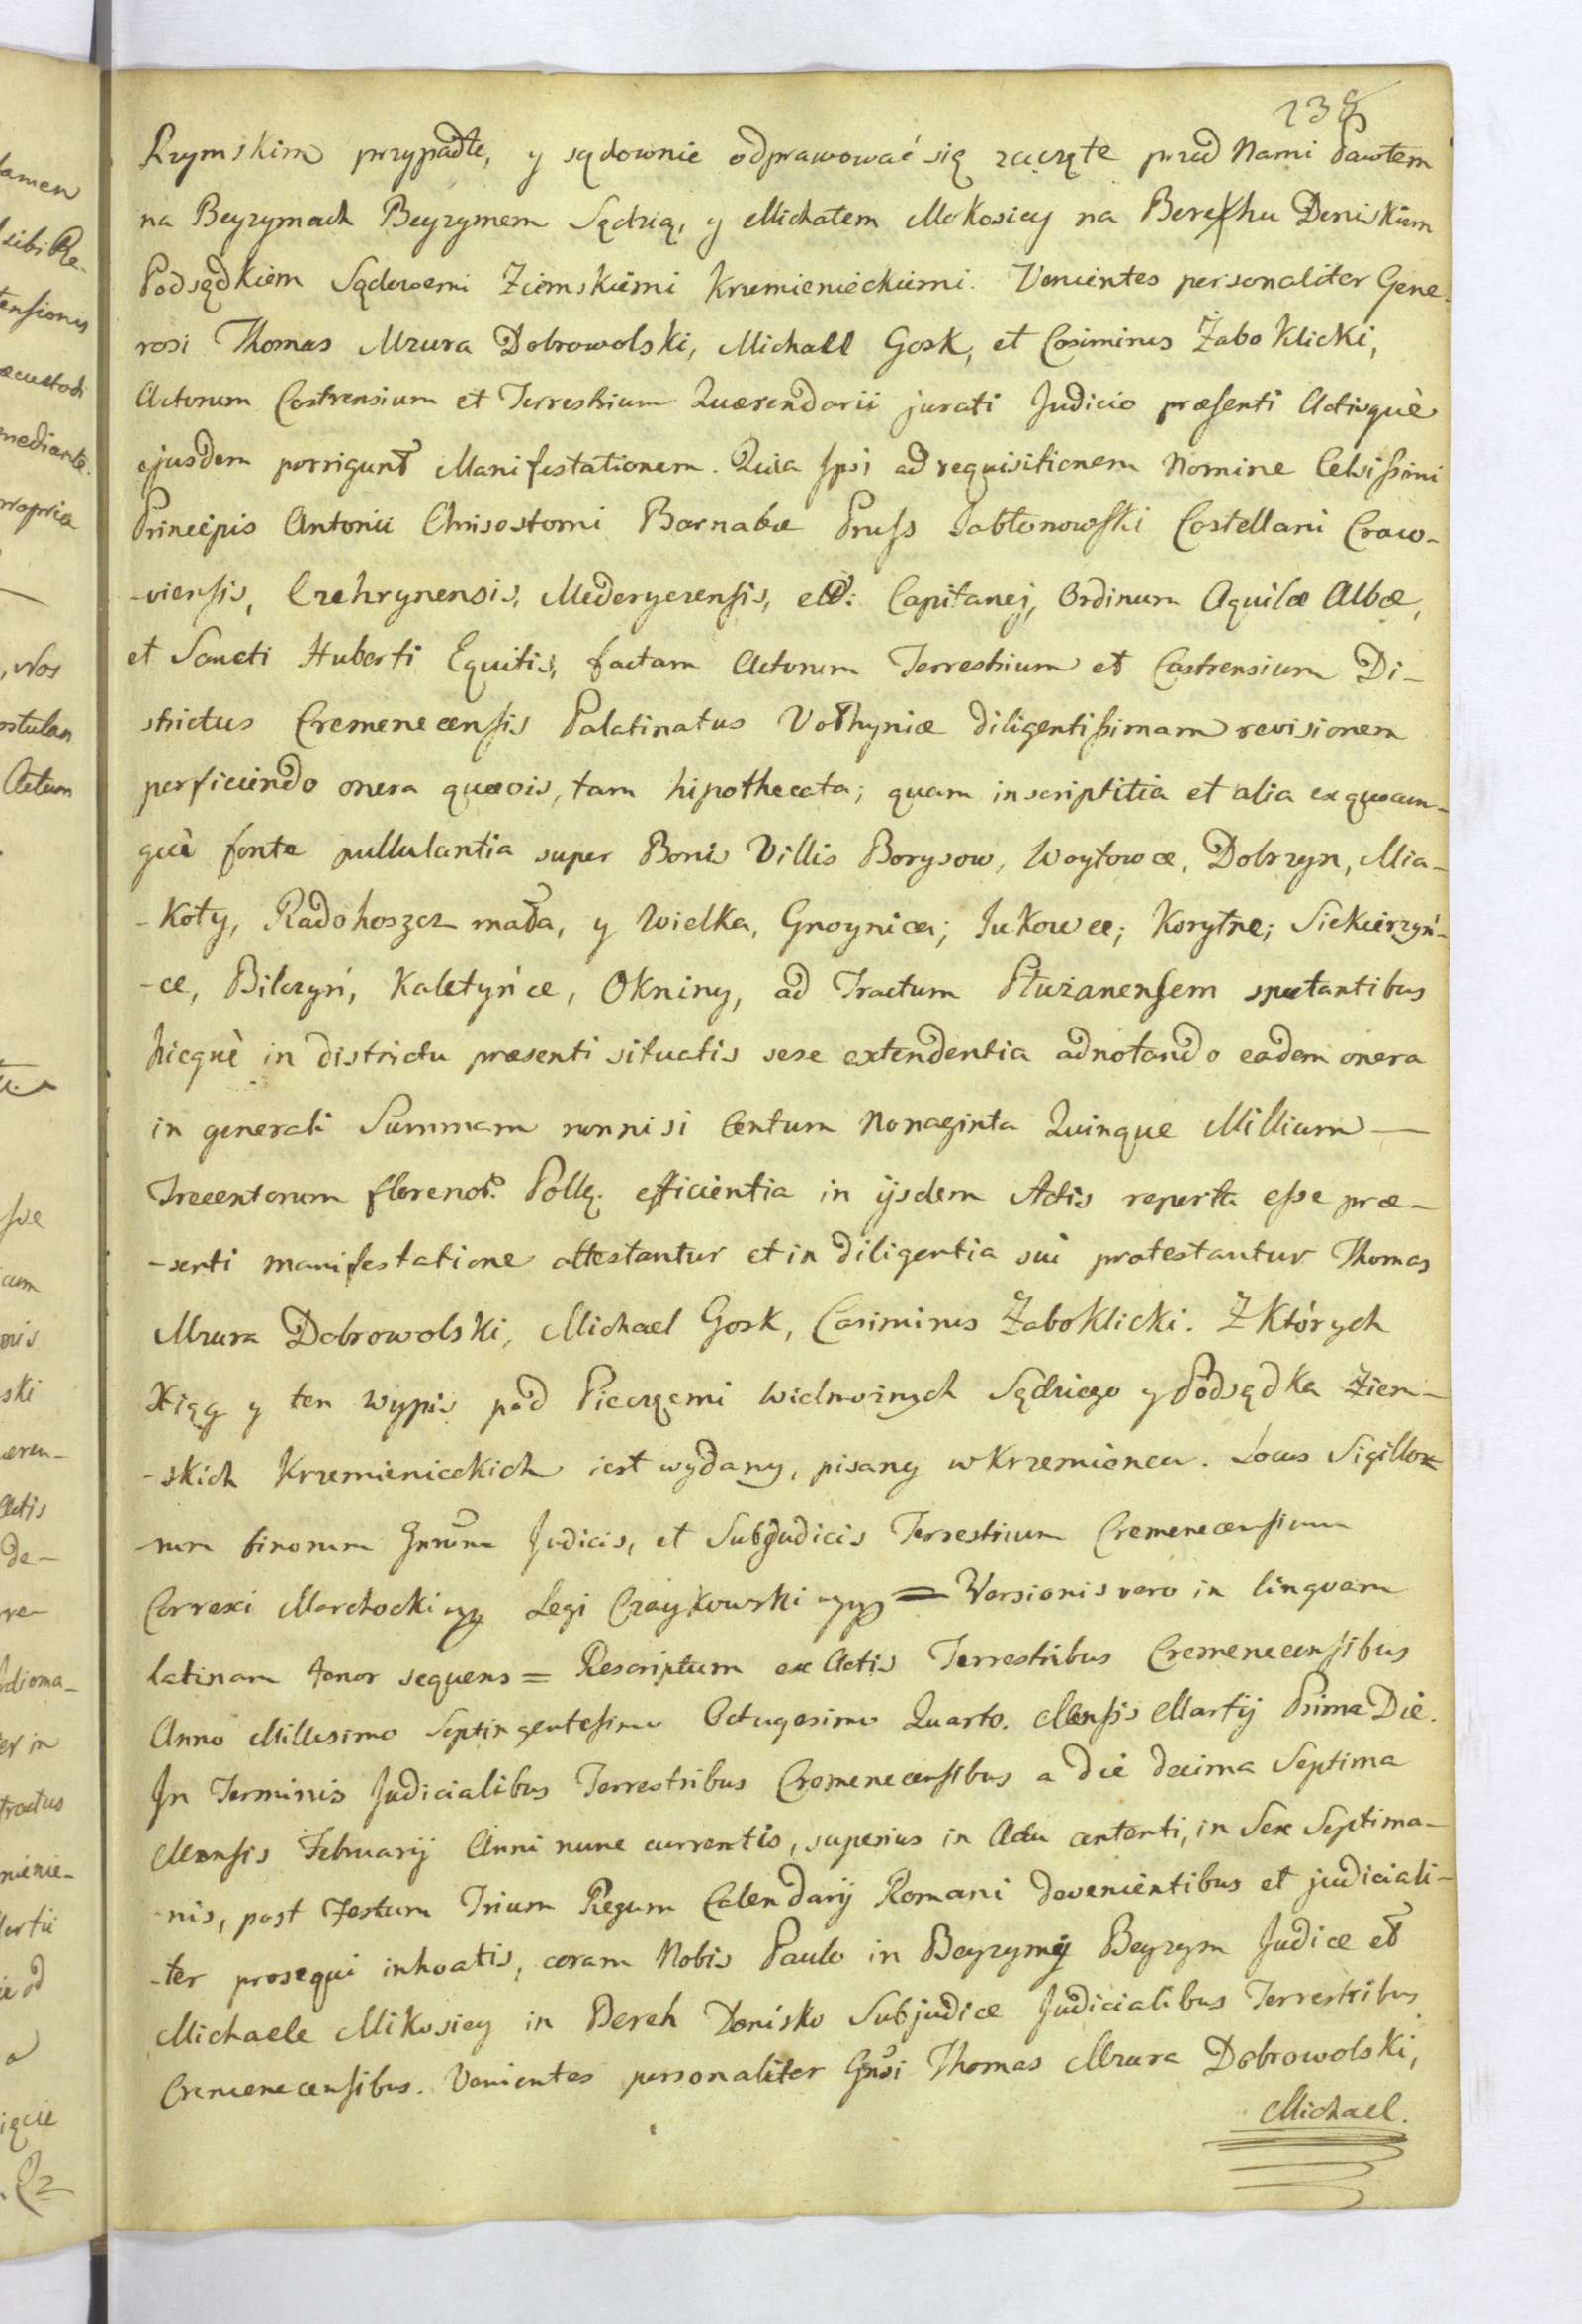 238
Rzymskim przypadłe, y sądownie odprawować się zaczęte przed Nami Pawłem
na Beyzymach Beyzymem Sędzią, y Michałem Mokosiey na Berehu Deniskiem
Podsędkiem Sądowemi Ziemskiemi Krzemienieckiemi. Venientes personaliter Gene-
rosi Thomas Mzura Dobrowolski, Michall Gosk, et Casimirus Żaboklicki,
Actorum Castrensium et Terrestrium Quærendarii jurati Judicio præsenti Actisquè
ejusdem porrigunt Manifestationem. Quia Ipsi ad requisitionem Nomine Celsissimi
Principis Antonii Chrisostomi Barnabæ Pruss Jabłonowski Castellani Craco-
-viensis, Czehrynensis, Mederycensis, etc: Capitanej, Ordinum Aquilæ Albæ,
et Sancti Huberti Equitis, factam Actorum Terrestrium et Castrensium Di-
strictus Cremenecensis Palatinatus Volhyniæ diligentissimam revisionem
perficiendo onera quævis, tam hipothecata; quam inscriptitia et alia ex quocun-
què fonte pullulantia super Bonis Villis Borysow, Woytowce, Dobrzyn, Mia-
-koty, Radohoszcz mała, y Wielka, Gnoynica; Jukowce; Korytne; Siekierzyń-
-ce, Bilczyń, Kaletyńce, Okniny, ad Tractum Płużanensem spectantibus
hicquè in districtu præsenti situatis sese extendentia adnotando eadem onera
in generali Summam nonnisi Centum Nonaginta Quinque Millium —
Trecentorum florenor. Pollq. efficientia in ijsdem Actis reperta esse præ-
-senti manifestatione attestantur et in diligentia sui protestantur Thomas
Mzura Dobrowolski, Michael Gosk, Casimirus Żaboklicki. Z Których
Xiąg y ten wypis pod Pieczęcmi Wielmożnych Sędziego y Podsędka Ziem-
-skich Krzemienieckich iest wydany, pisany w Krzemieńcu. Locus Sigillo-
-rum binorum Gnrūm Judicis, et Subjudicis Terrestrium Cremenecensium
Correxi Marchocki Legi Czaykowski = Versionis vero in linguam
latinam tenor sequens = Rescriptum ex Actis Terrestribus Cremenecensibus
Anno Millesimo Septingentesimo Octugesimo Quarto. Mensis Martij Prima Die.
In Terminis Judicialibus Terrestribus Cremenecensibus a die decima Septima
Mensis Februarij Anni nunc currentis, superius in Actu contenti, in Sex Septima-
-nis, post Festum Trium Regum Calendarij Romani devenientibus et judiciali-
-ter prosequi inhoatis, coram Nobis Paulo in Beyzymy Beyzym Judice et
Michaele Mikosiey in Bereh Denisko Subjudice Judicialibus Terrestribus
Cremenecensibus. Venientes personaliter Gnsi Thomas Mzura Dobrowolski,
Michael.